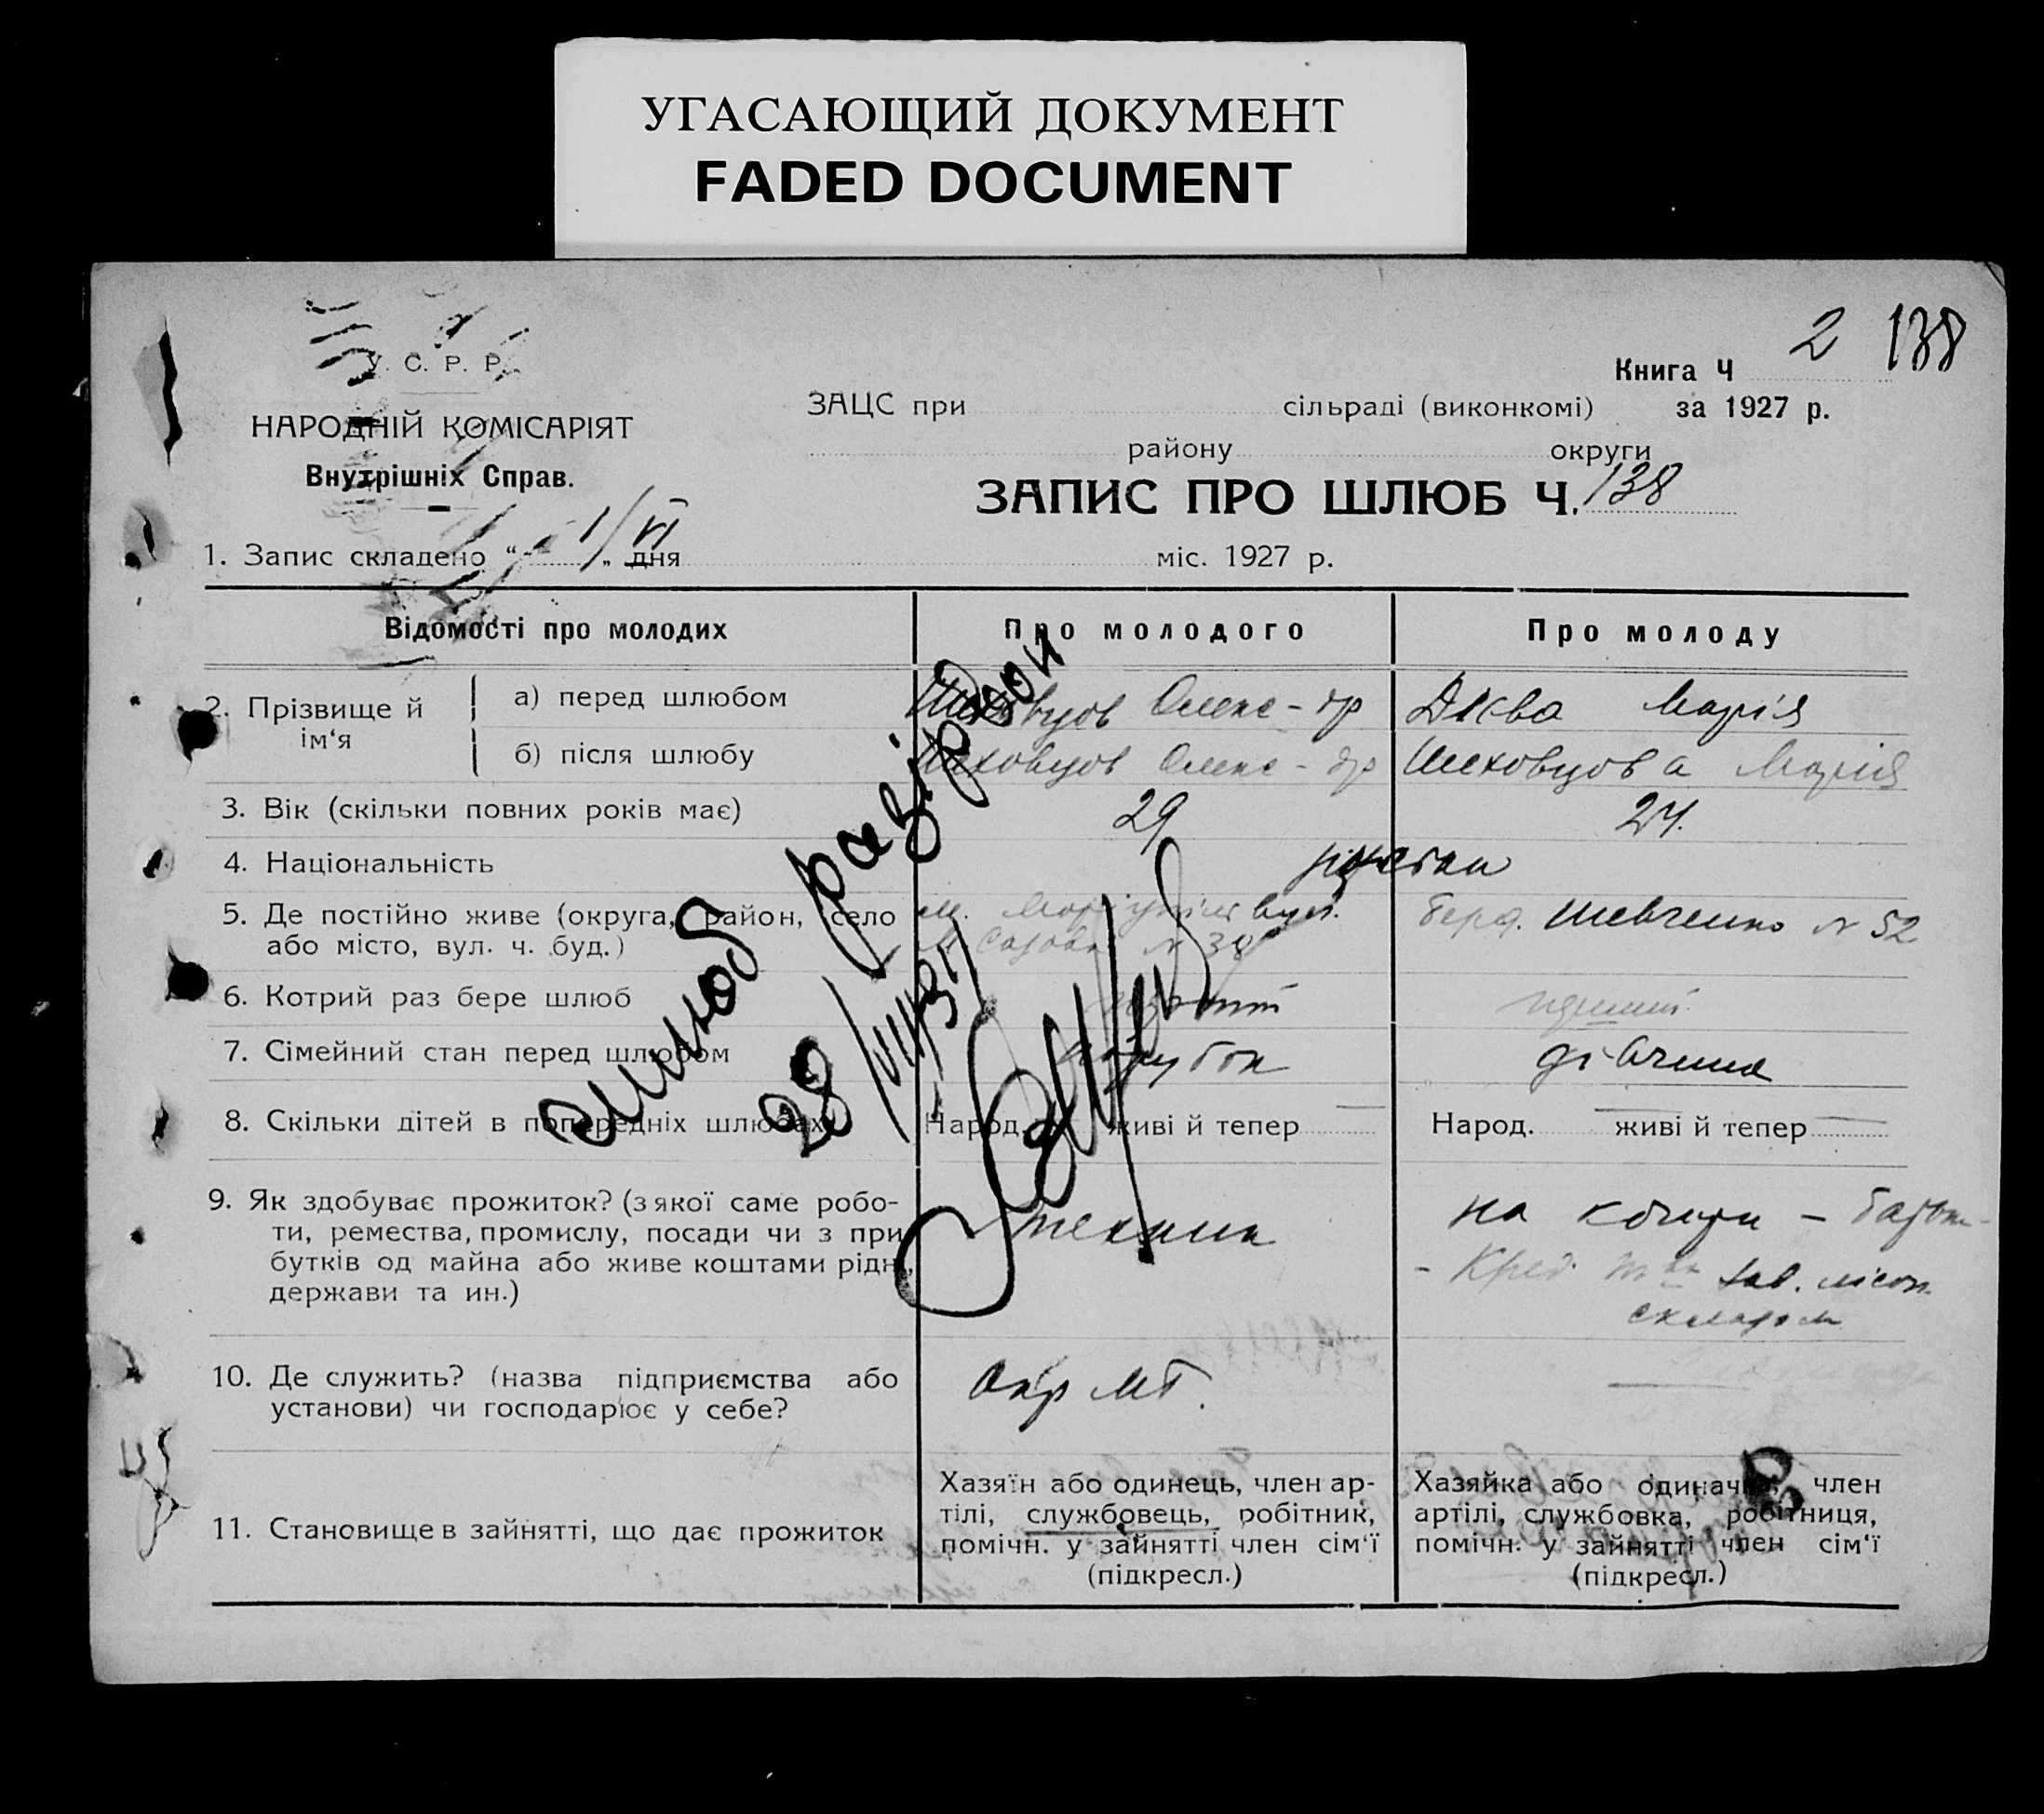 УГАСАЮЩИЙ ДОКУМЕНТ
FADED DOCUMENT
2 138
У. С. Р. Р.
НАРОДНІЙ КОМІСАРІЯТ
Внутрішніх Справ.
Книга Ч
ЗАЦС при сільраді (виконкомі) за 1927 р.
району округи
ЗАПИС ПРО ШЛЮБ Ч. 138
1. Запис складено “ 1/VI „ дня міс. 1927 р.
Відомості про молодих Про молодого Про молоду
2. Прізвище й ім‘я
а) перед шлюбом Шеховцов Олекс-др Дієва Марія
б) після шлюбу Шеховцов Олекс-др Шеховцова Марія
3. Вік (скільки повних років має) 29 24.
4. Національність
5. Де постійно живе (округа, район, село м. Маріупіль вул. Шевченко N 52
або місто, вул. ч. буд.) М. Садова N 38
6. Котрий раз бере шлюб перший
7. Сімейний стан перед шлюбом парубок дівчина
8. Скільки дітей в попередніх шлюбах Народ. живі й тепер Народ. живі й тепер
9. Як здобуває прожиток? (з якої саме робо-
ти, ремества, промислу, посади чи з при
бутків од майна або живе коштами рідн.,
держави та ин.)
технік
на кошти – батьк-
- Кред. т-ва зав. лісом.
складом
10. Де служить? (назва підприємства або
установи) чи господарює у себе?
Окр МТ.
11. Становище в зайнятті, що дає прожиток
Хазяїн або одинець, член ар-
тілі, службовець, робітник,
помічн. у зайнятті член сім‘ї
(підкресл.)
Хазяйка або одиначка, член
артілі, службовка, робітниця,
помічн. у зайнятті член сім‘ї
(підкресл.)
шлюб розірвон
28/VII 37